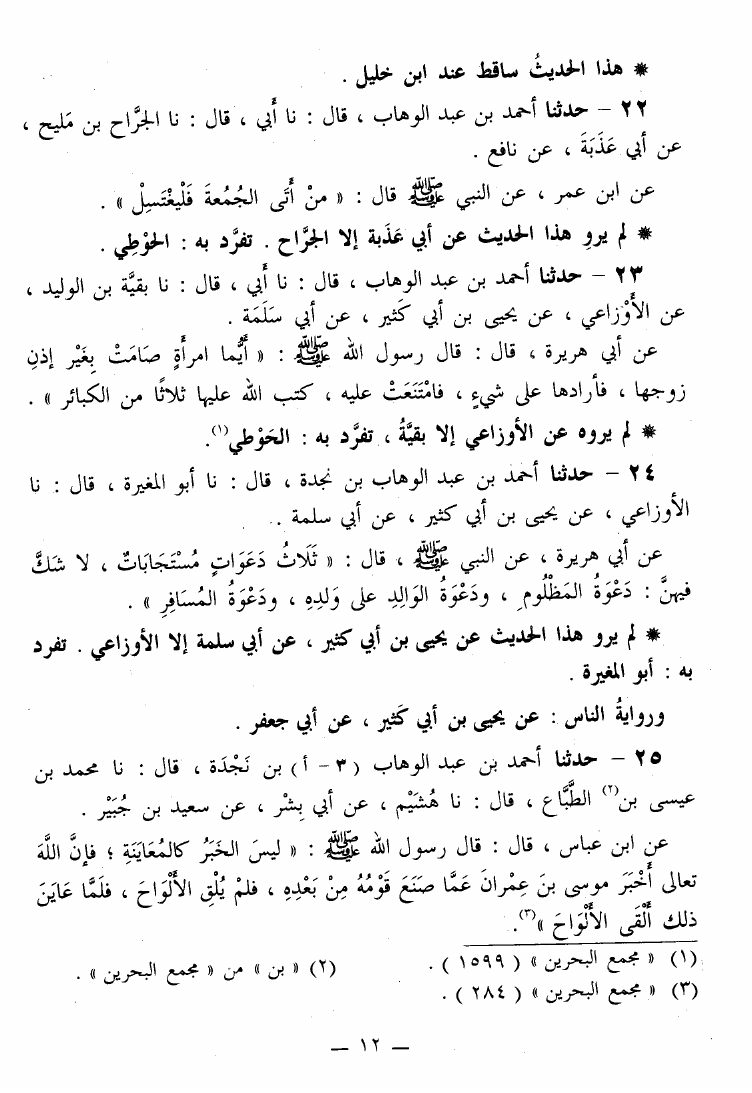 * هذا الحديثُ ساقط عند ابن خليل .
٢٢ – حدثنا أحمد بن عبد الوهاب ، قال : نا أَبي ، قال : نا الجرَّاح بن مَليح ،
عن أبي عَذَبَةَ ، عن نافع .
عن ابن عمر ، عن النبي ﷺ قال : « منْ أَتَى الجُمُعةَ فَلْيغْتَسِلْ » .
* لم يروِ هذا الحديث عن أبي عَذَبة إلا الجرَّاح . تفرَّد به : الحَوْطِي .
٢٣ – حدثنا أحمد بن عبد الوهاب ، قال : نا أَبي ، قال : نا بقيَّة بن الوليد ،
عن الأَوْزاعي ، عن يحيى بن أبي كَثير ، عن أبي سَلَمَة .
عن أبي هريرة ، قال : قال رسول الله ﷺ : « أَيُّما امرأَةٍ صَامَتْ بِغَيْر إذنِ
زوجها ، فأرادها على شيءٍ ، فامْتَنَعَتْ عليه ، كتب الله عليها ثلاثًا من الكبائر » .
* لم يروه عن الأوزاعي إلا بقيَّةُ ، تفرَّد به : الحَوْطي(١).
٢٤ – حدثنا أحمد بن عبد الوهاب بن نجدة ، قال : نا أبو المغيرة ، قال : نا
الأوزاعي ، عن يحيى بن أبي كثير ، عن أبي سلمة .
عن أبي هريرة ، عن النبي ﷺ ، قال : « ثَلَاثُ دَعَواتٍ مُسْتَجَابَاتٌ ، لا شَكَّ
فيهنَّ : دَعْوَةُ المَظْلُومِ ، ودَعْوَةُ الوَالِدِ على وَلدِهِ ، ودَعْوَةُ المُسَافِرِ » .
* لم يرو هذا الحديث عن يحيى بن أبي كثير ، عن أبي سلمة إلا الأوزاعي . تفرد
به : أبو المغيرة .
وروايةُ الناس : عن يحيى بن أبي كَثير ، عن أبي جعفر .
٢٥ – حدثنا أحمد بن عبد الوهاب ( ٣ – أ ) بن نَجْدَة ، قال : نا محمد بن
عيسى بن(٢) الطَّبَّاع ، قال : نا هُشَيْم ، عن أبي بِشْر ، عن سعيد بن جُبَيْر .
عن ابن عباس ، قال : قال رسول الله ﷺ : « ليسَ الخَبَرُ كالمُعَايَنَةِ ؛ فإنَّ اللَّهَ
تعالى أَخْبَرَ موسى بنَ عِمْرانَ عَمَّا صَنَعَ قَوْمُهُ مِنْ بَعْدِهِ ، فلمْ يُلْقِ الأَلْوَاحَ ، فَلَمَّا عَايَنَ
ذلك أَلْقَى الأَلْوَاحَ »(٣).
(١) « مجمع البحرين » ( ١٥٩٩ ) . (٢) « بن » من « مجمع البحرين » .
(٣) « مجمع البحرين » ( ٢٨٤ ) .
— ١٢ —